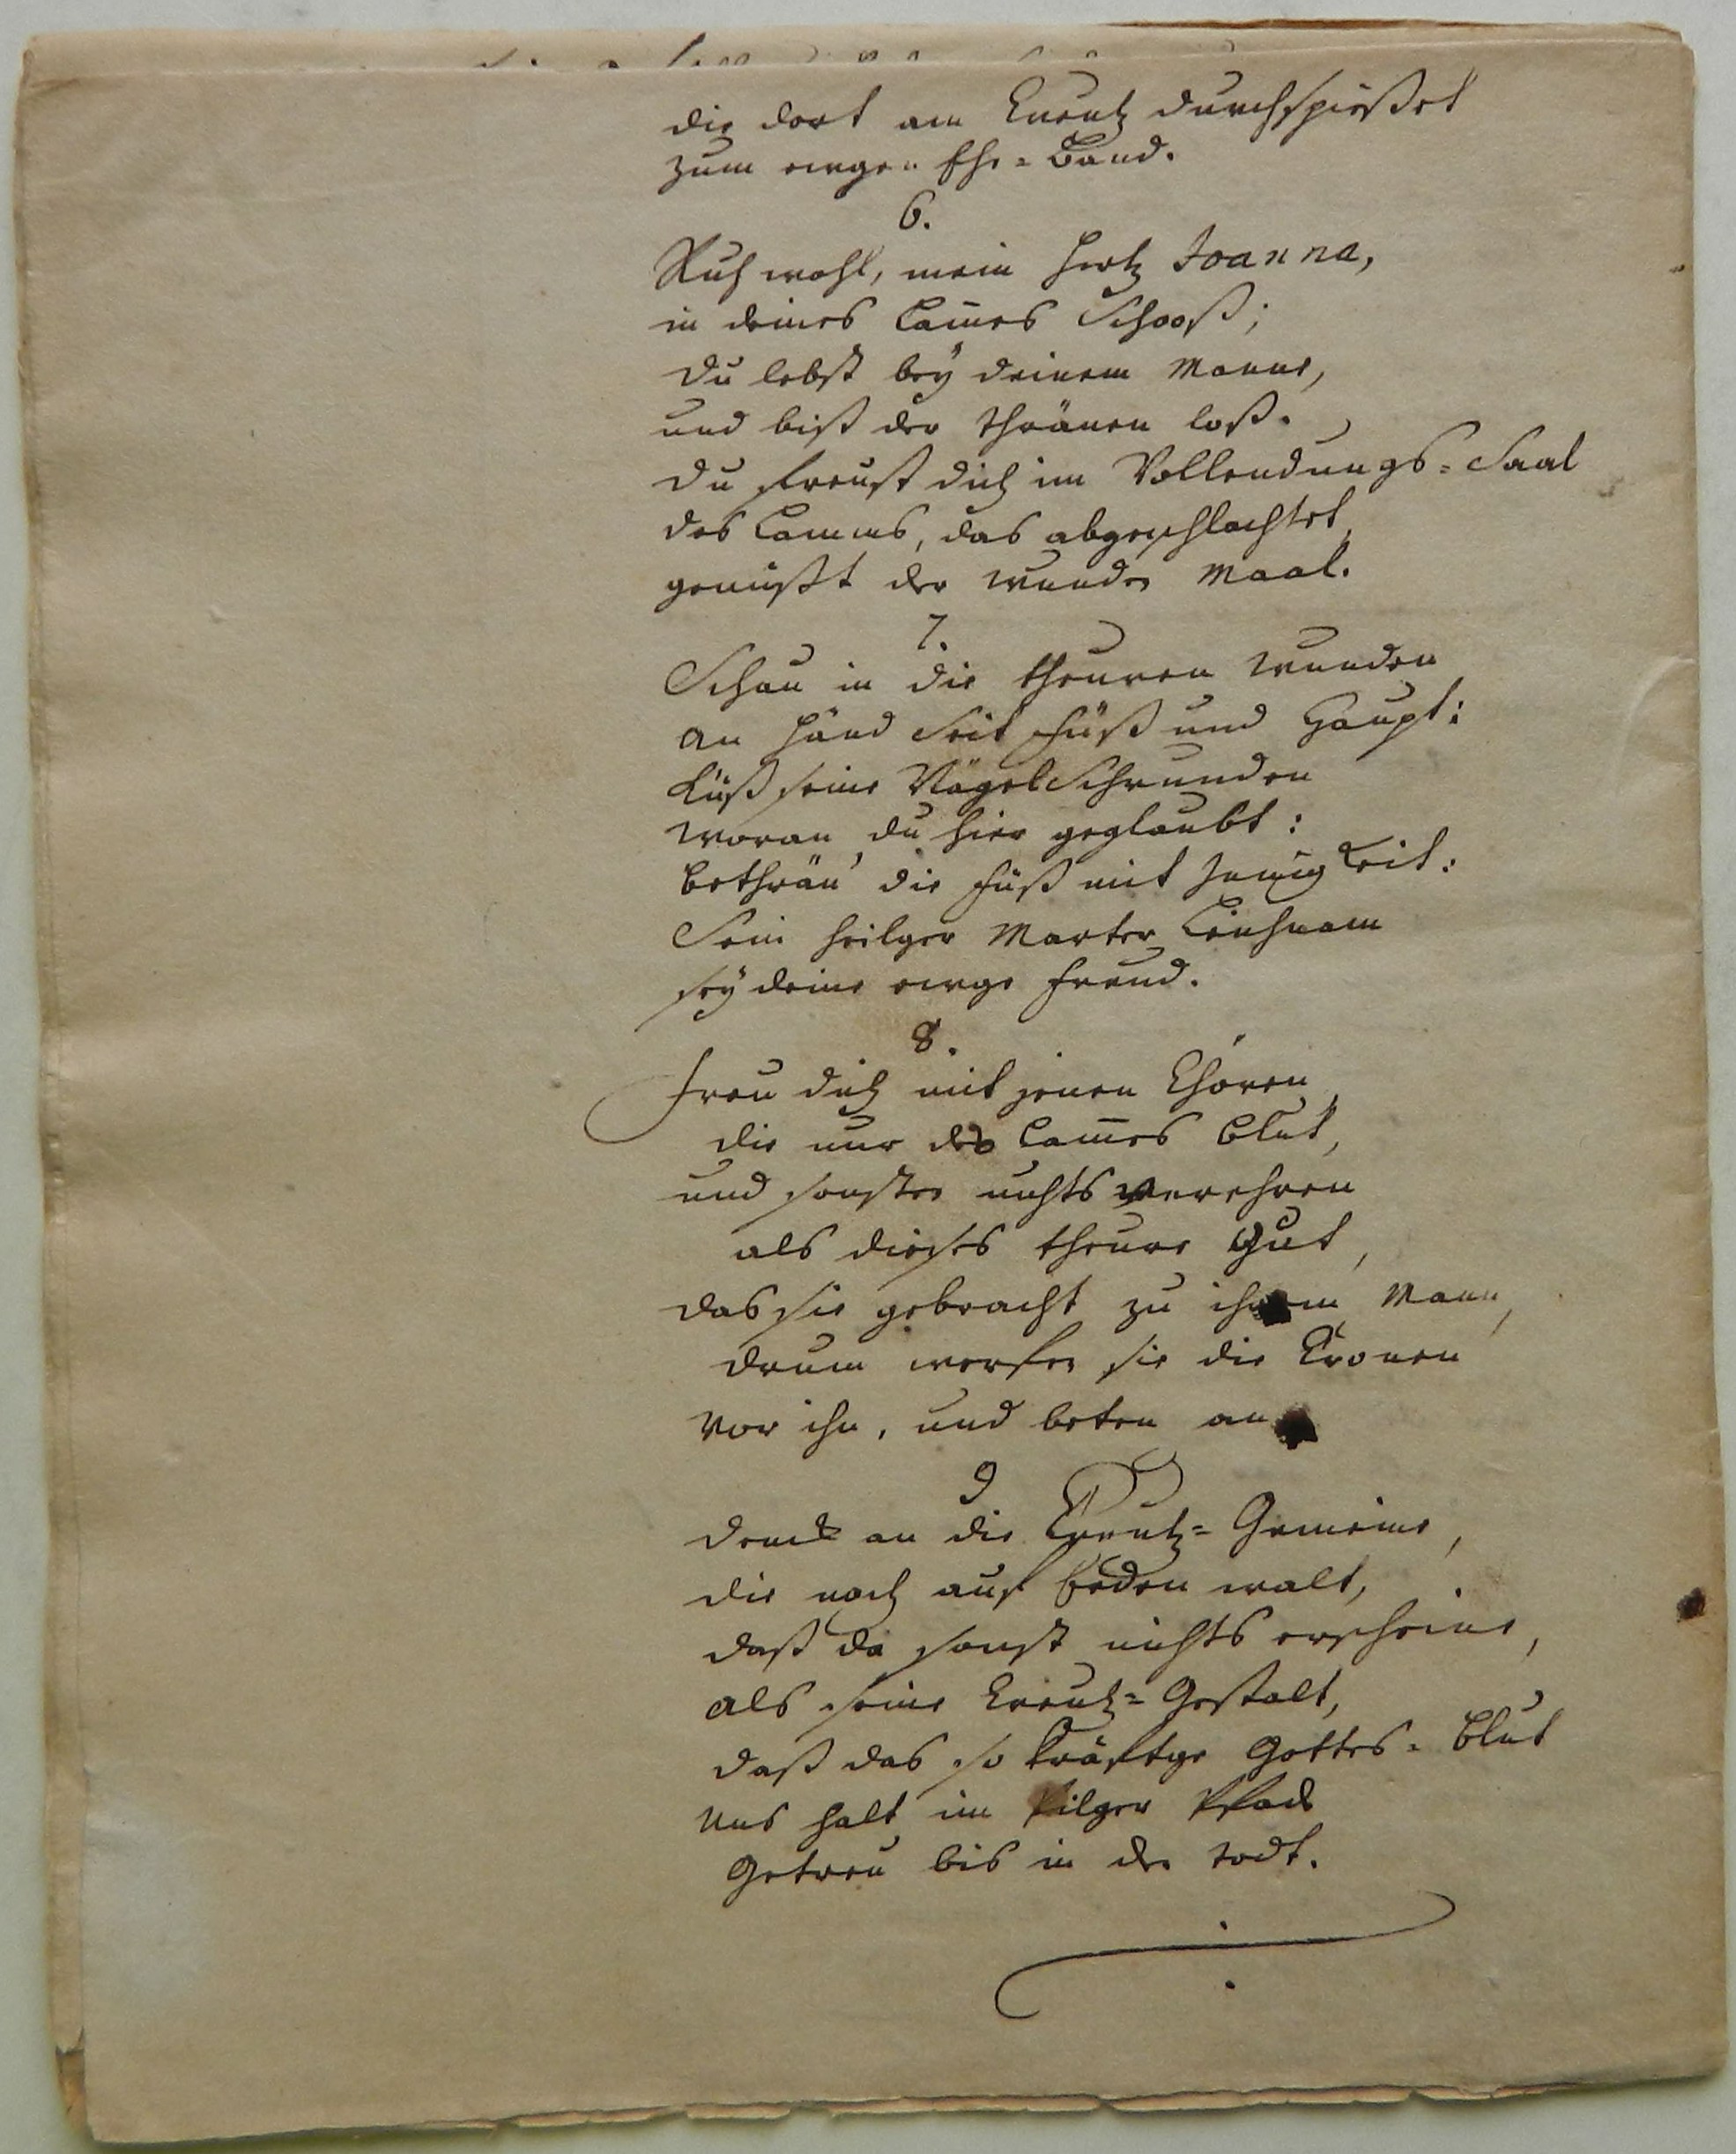 die dort am Creutz durchspießet
zum ewgen Ehe=Band.
6.
Ruh wohl, mein Hertz Joanna,
in deines Lam̄es Schooß;
du lebst bey deinem Manne,
und bist der thränen loß.
du freust dich im Vollendungs=Saal
des Lamms, das abgeschlachtet,
genießt der Wunden Maal.
7.
Schau in die theuren Wunden
an Händ Seit Füß und Haupt:
Küß seine Nägel Schrunden
woran du hier geglaubt:
bethrän' die Füß mit Innigkeit:
Sein heilger Marter Leichnam
sey deine ewge Freud.
8.
Freu dich mit jenen Chören,
die nur des Lam̄es Blut,
und sonsten nichts verehren
als dieses theure Gut,
das sie gebracht zu ihrem Mann,
drum werfen sie die Cronen
vor ihn, und beten an
9
denck an die Creutz=Gemeine,
die noch auf Erden walt,
daß da sonst nichts erscheine,
als seine Creutz=Gestalt,
daß das so kräftge Gottes=Blut
uns halt im Pilger Pfad
Getreu bis in den todt.